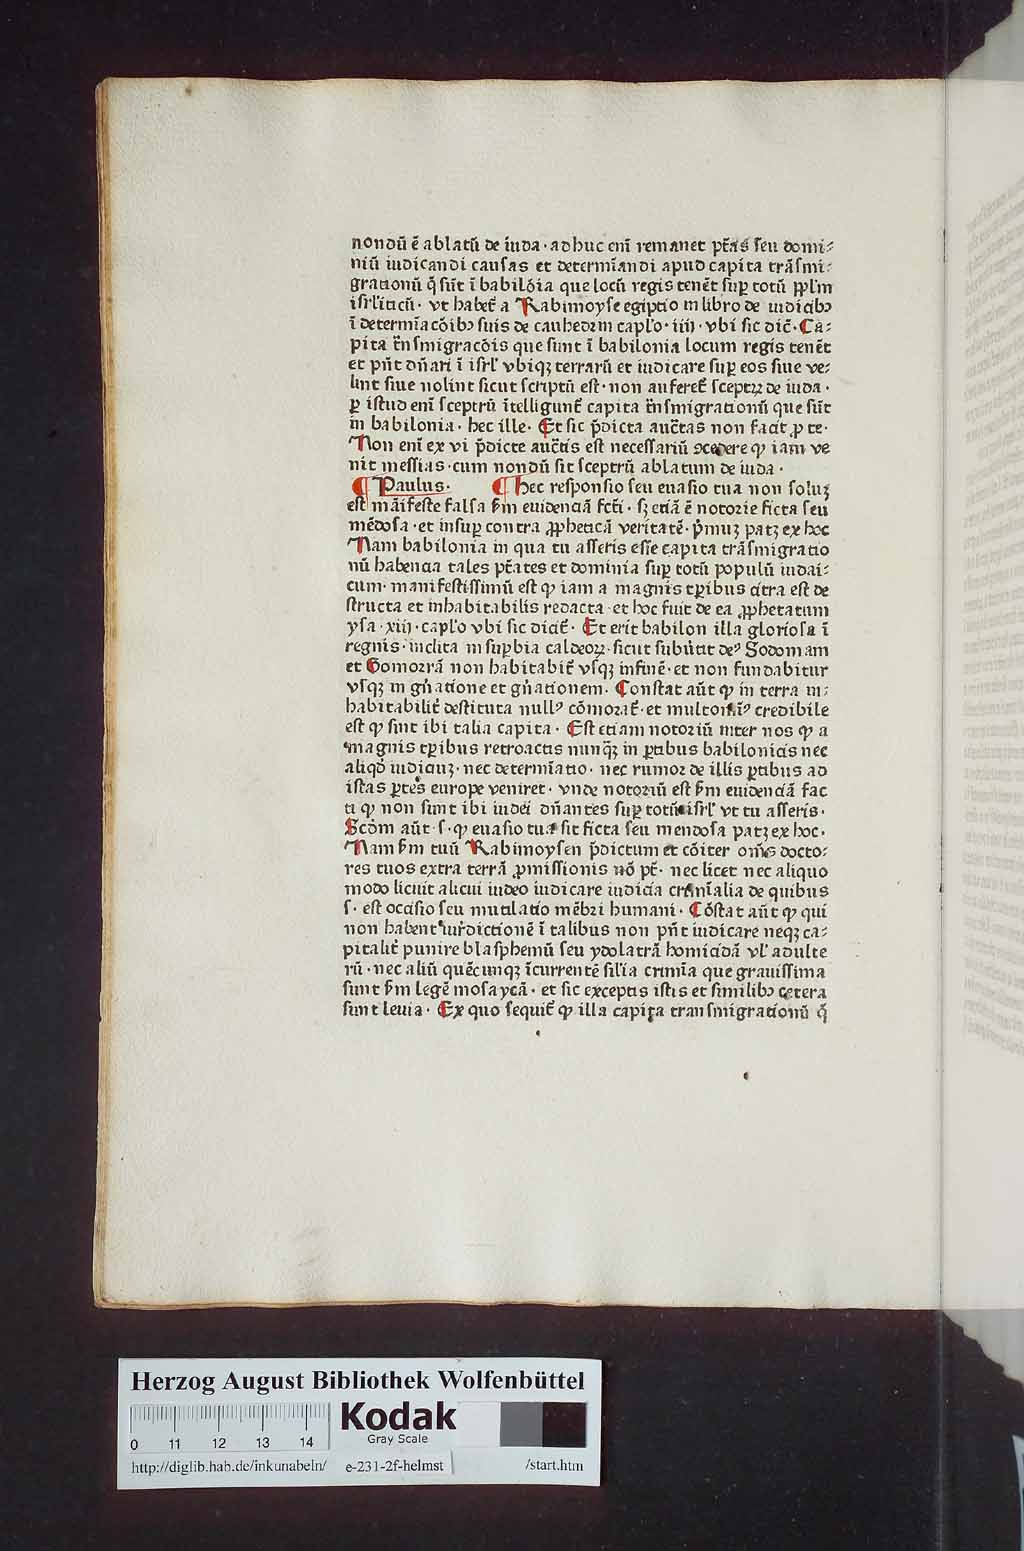 nondū ē ablatū de iuda · adhuc enī remanet ptās seu domi⸗
niū iudicandi causas et determīandi apud capita trāsmi⸗
grationū q̄ sūt ī babilōia que locū regis tenēt sup totū pplm
isrl'iticū · vt habet̄ a Rabimoyse egiptio in libro de iudicibꝫ
ī determīacōibꝫ suis de cauhedrin caplo · iiij · vbi sic dic̄ · Ca⸗
pita trāsmigracōis que sunt ī babilonia locum regis tenēt
et pn̄t dn̄ari ī isrl' vbiqꝫ terrarū et iudicare sup eos siue ve⸗
lint siue nolint sicut scriptū est · non auferet̄ sceptꝝ de iuda ·
ꝑ istud enī sceptrū ītelligunt̄ capita trāsmigrationū que sūt
in babilonia · hec ille · Et sic p̄dicta auctās non facit ꝓ te ·
Non enī ex vi p̄dicte auctīs est necessariū ꝯcedere ꝙ iam ve
nit messias · cum nondū sit sceptrū ablatum de iuda ·
¶ Paulus · ¶ Hec responsio seu euasio tua non soluꝫ
est māifeste falsa sm̄ euidenciā fcti · sꝫ etiā ē notorie ficta seu
mēdosa · et insuꝑ contra ꝓpheticā veritatē · p̄muꝫ patꝫ ex hoc
Nam babilonia in qua tu asseris esse capita trāsmigratio
nū habencia tales ptātes et dominia suꝑ totū populū iudai⸗
cum · manifestissimū est ꝙ iam a magnis tꝑibus citra est de
structa et inhabitabilis redacta · et hoc fuit de ea ꝓphetatum
ysa · xiij · caplo vbi sic dicit̄ · Et erit babilon illa gloriosa ī
regnis · inclita in suꝑbia caldeoꝝ · sicut subūtit deꝰ Sodomam
et Gomorrā non habitabit̄ vsqꝫ in finē · et non fundabitur
vsqꝫ in gn̄atione et gn̄ationem · Constat aūt ꝙ in terra in⸗
habitabilit̄ destituta nullꝰ cōmorat̄ · et multominꝰ credibile
est ꝙ sint ibi talia capita · Est etiam notoriū inter nos ꝙ a
magnis tꝑibus retroactis nunqꝫ in ꝑtibus babilonicis nec
aliqd̄ iudiciuꝫ · nec determīatio · nec rumor de illis ꝑtibus ad
istas ꝑtes europe veniret · vnde notoriū est sm̄ euidenciā fac
ti ꝙ non sunt ibi iudei dn̄antes suꝑ totū isrl' vt tu asseris ·
Scdm̄ aūt · s · ꝙ euasio tua sit ficta seu mendosa patꝫ ex hoc ·
Nam sm̄ tuū Rabimoysen p̄dictum et cōiter om̄s docto⸗
res tuos extra terrā ꝓmissionis nō pt̄ · nec licet nec aliquo
modo licuit alicui iudeo iudicare iudicia crimīalia de quibus
s · est occisio seu mutilatio mēbri humani · Cōstat aūt ꝙ qui
non habent iurdictionē ī talibus non pn̄t iudicare neqꝫ ca⸗
pitalit̄ punire blasphemū seu ydolatrā homicidā vl' adulte
rū · nec aliū quēcunqꝫ īcurrentē silia crimīa que grauissima
sunt sm̄ legē mosaycā · et sic exceptis istis et similibꝫ cetera
sunt leuia · Ex quo sequit̄ ꝙ illa capita transmigrationū q̄
Herzog August Bibliothek Wolfenbüttel
Kodak
Gray Scale
0 11 12 13 14
http://diglib.hab.de/inkunabeln/ e-231-2f-helmst /start.htm